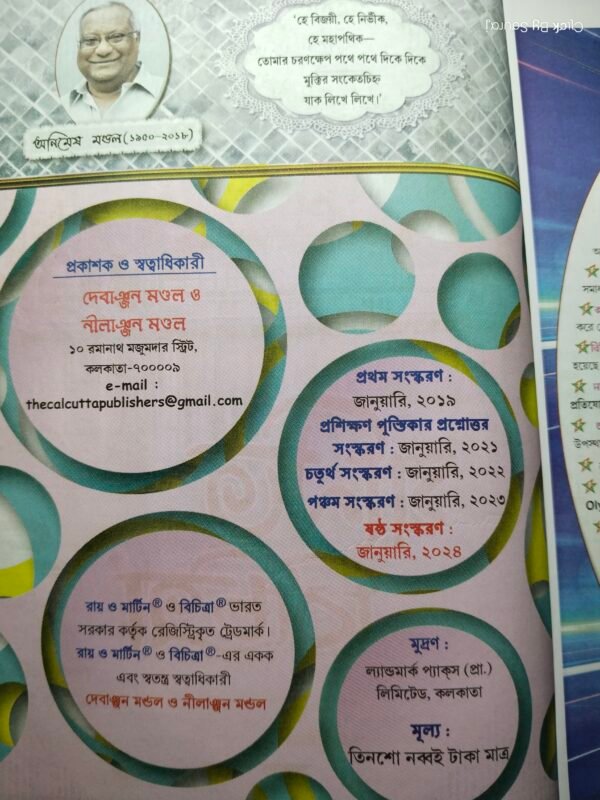 Click By Sourav
'হে বিজয়ী, হে নির্ভীক,
হে মহাপথিক—
তোমার চরণক্ষেপ পথে পথে দিকে দিকে
মুক্তির সংকেতচিহ্ন
যাক লিখে লিখে।'
অনিমেষ মণ্ডল (১৯৫০-২০১৮)
প্রকাশক ও স্বত্বাধিকারী
দেবাঞ্জন মণ্ডল ও
নীলাঞ্জন মণ্ডল
১০ রমানাথ মজুমদার স্ট্রিট,
কলকাতা-৭০০০০৯
e-mail :
thecalcuttapublishers@gmail.com
প্রথম সংস্করণ :
জানুয়ারি, ২০১৯
প্রশিক্ষণ পুস্তিকার প্রশ্নোত্তর
সংস্করণ : জানুয়ারি, ২০২১
চতুর্থ সংস্করণ : জানুয়ারি, ২০২২
পঞ্চম সংস্করণ : জানুয়ারি, ২০২৩
ষষ্ঠ সংস্করণ :
জানুয়ারি, ২০২৪
রায় ও মার্টিন® ও বিচিত্রা® ভারত
সরকার কর্তৃক রেজিস্ট্রিকৃত ট্রেডমার্ক।
রায় ও মার্টিন® ও বিচিত্রা®-এর একক
এবং স্বতন্ত্র স্বত্বাধিকারী
দেবাঞ্জন মণ্ডল ও নীলাঞ্জন মণ্ডল
মুদ্রণ :
ল্যান্ডমার্ক প্যাক্‌স (প্রা.)
লিমিটেড, কলকাতা
মূল্য :
তিনশো নব্বই টাকা মাত্র